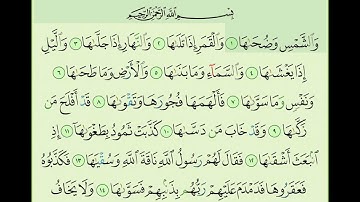 بِسْمِ اللَّهِ الرَّحْمَٰنِ الرَّحِيمِ
وَالشَّمْسِ وَضُحَىٰهَا ١ وَالْقَمَرِ إِذَا تَلَىٰهَا ٢ وَالنَّهَارِ إِذَا جَلَّىٰهَا ٣ وَالَّيْلِ
إِذَا يَغْشَىٰهَا ٤ وَالسَّمَاءِ وَمَا بَنَىٰهَا ٥ وَالْأَرْضِ وَمَا طَحَىٰهَا ٦
وَنَفْسٍ وَمَا سَوَّىٰهَا ٧ فَأَلْهَمَهَا فُجُورَهَا وَتَقْوَىٰهَا ٨ قَدْ أَفْلَحَ مَن
زَكَّىٰهَا ٩ وَقَدْ خَابَ مَن دَسَّىٰهَا ١٠ كَذَّبَتْ ثَمُودُ بِطَغْوَىٰهَا ١١ إِذِ
انبَعَثَ أَشْقَىٰهَا ١٢ فَقَالَ لَهُمْ رَسُولُ اللَّهِ نَاقَةَ اللَّهِ وَسُقْيَٰهَا ١٣ فَكَذَّبُوهُ
فَعَقَرُوهَا فَدَمْدَمَ عَلَيْهِمْ رَبُّهُم بِذَنبِهِمْ فَسَوَّىٰهَا ١٤ وَلَا يَخَافُ